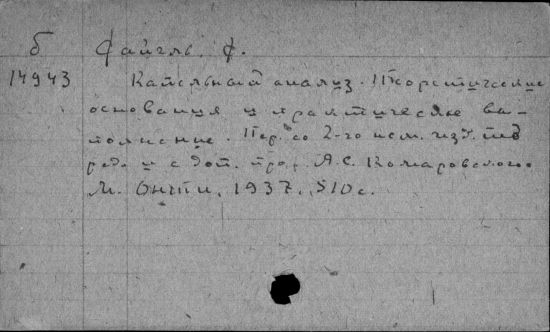 б Файгль, Ф.
14943 Капельный анализ. Теоретические
основания и практическое вы-
полнение. Пер. со 2-го нем. изд. под
ред. и с доп. проф. А.С. Комаровского.
М. Онти, 1937. 510 с.